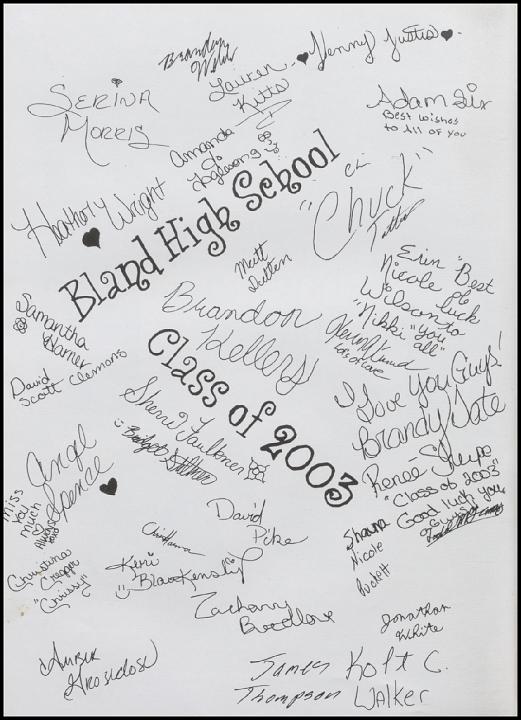 Brandon
Lauren
Kitts
Jenny Justis
Serina
Morris
Adam Six
Best wishes
to All of you
Amanda
Heather Wright
Bland High School
"Chuck"
Matt
Brandon
Kellers
Erin "Best
Nicole of
Wilson luck
"Nikki" to
you
all"
Samantha
Harner
David
Scott Clemons
Class of 2003
I Love You Guys!
Brandy Tate
Sherri Faulkner
Angel
Spence
Miss
you
much
Always
Renee Sharpe
"Class of 2003"
Good luck you
Guys
David
Pike
Shauna
Nicole
Christina
"Chrissy"
Keri
Blankenship
Zachary
Breedlove
Jonathan
White
Amber
Grosclose
James
Thompson
Kolt C.
Walker